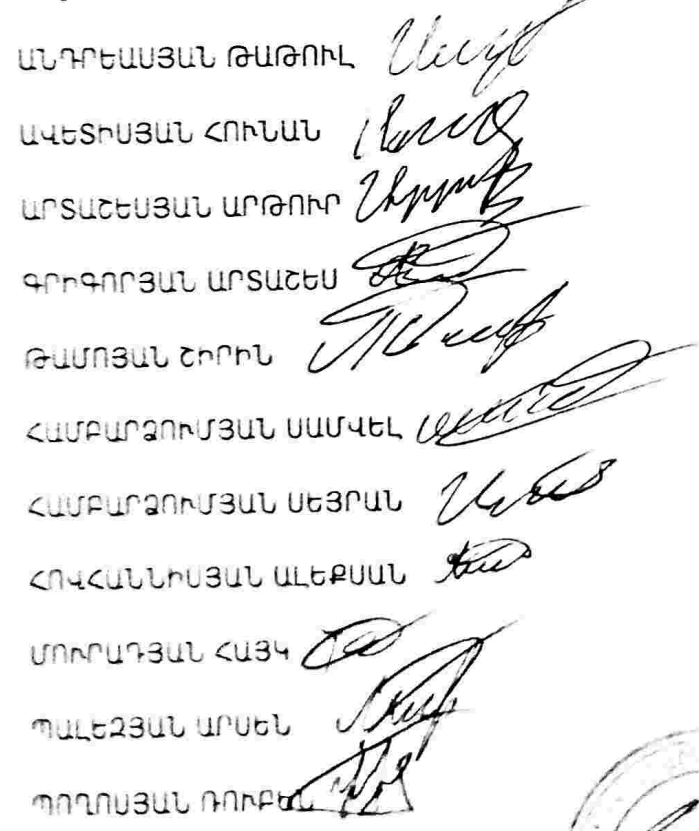 ԱՆԴՐԵԱՍՅԱՆ ԹԱԹՈՒԼ
ԱՎԵՏԻՍՅԱՆ ՀՈՒՆԱՆ
ԱՐՏԱՇԵՍՅԱՆ ԱՐԹՈՒՐ
ԳՐԻԳՈՐՅԱՆ ԱՐՏԱՇԵՍ
ԹԱՄՈՅԱՆ ՇԻՐԻՆ
ՀԱՄԲԱՐՁՈՒՄՅԱՆ ՍԱՄՎԵԼ
ՀԱՄԲԱՐՁՈՒՄՅԱՆ ՍԵՅՐԱՆ
ՀՈՎՀԱՆՆԻՍՅԱՆ ԱԼԵՔՍԱՆ
ՄՈՒՐԱԴՅԱՆ ՀԱՅԿ
ՊԱԼԵԶՅԱՆ ԱՐՍԵՆ
ՊՈՂՈՍՅԱՆ ՌՈՒԲԵՆ